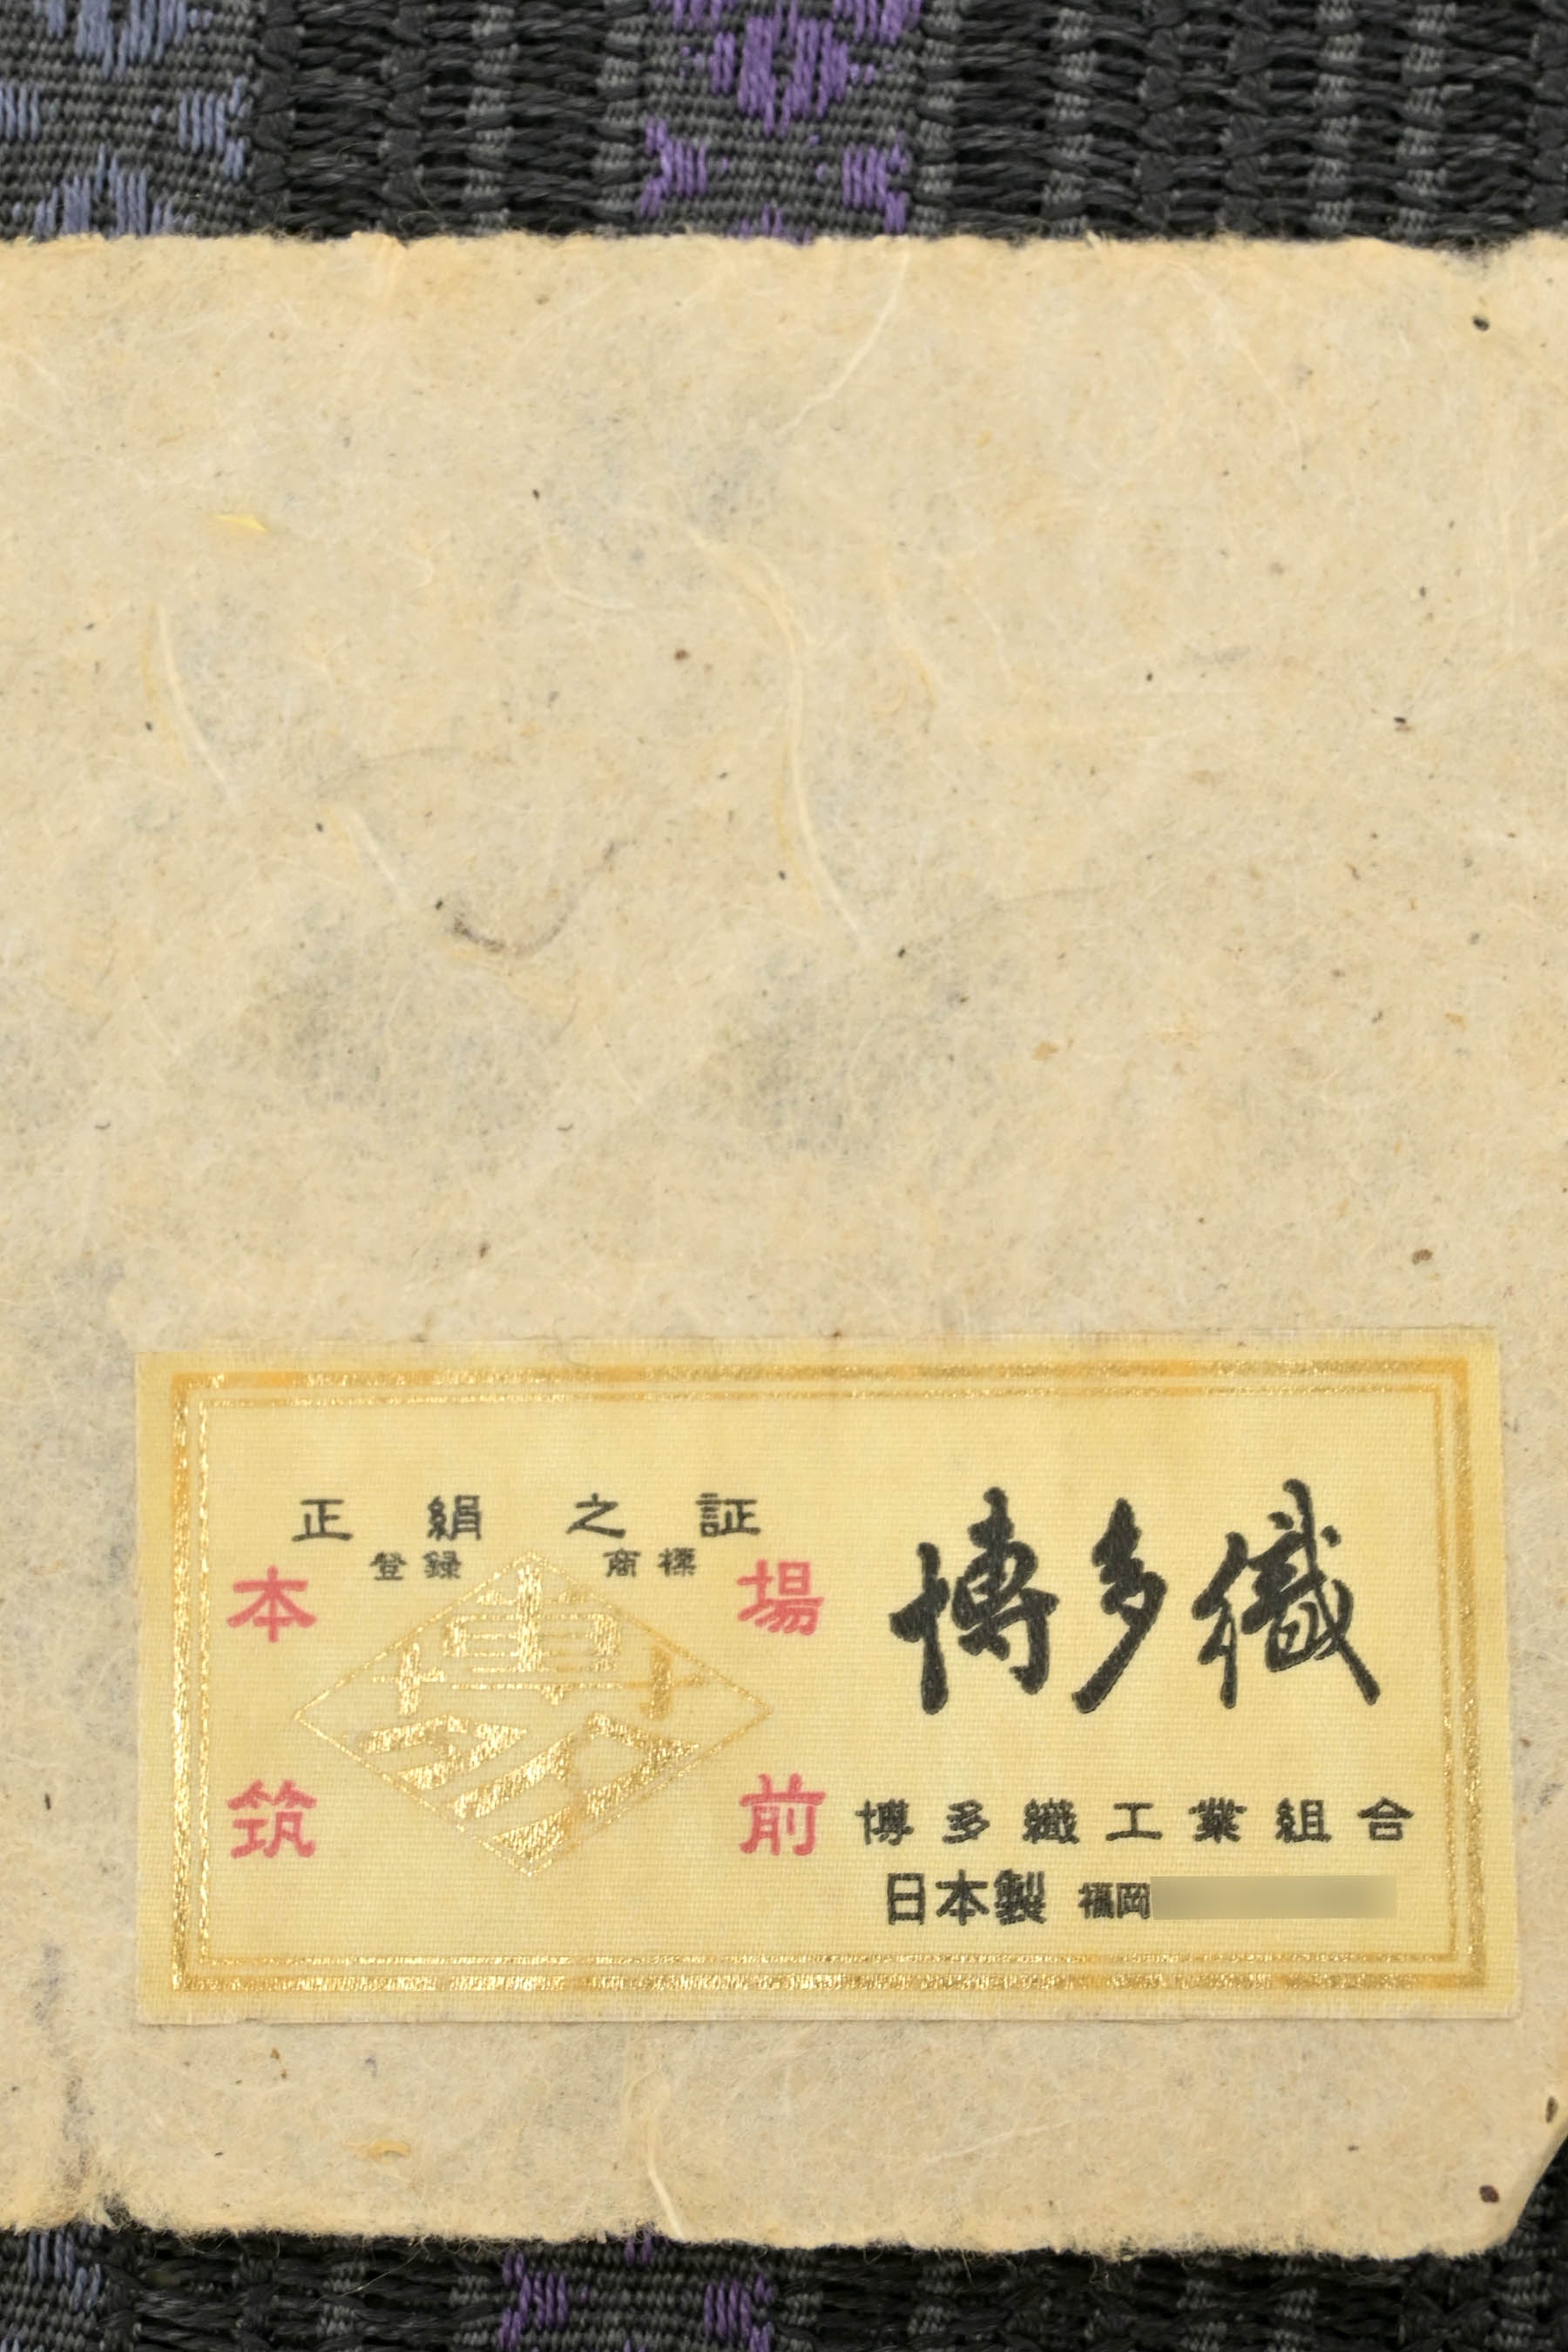 正絹之証
登録商標
本場
筑前
博多織
博多織工業組合
日本製 福岡